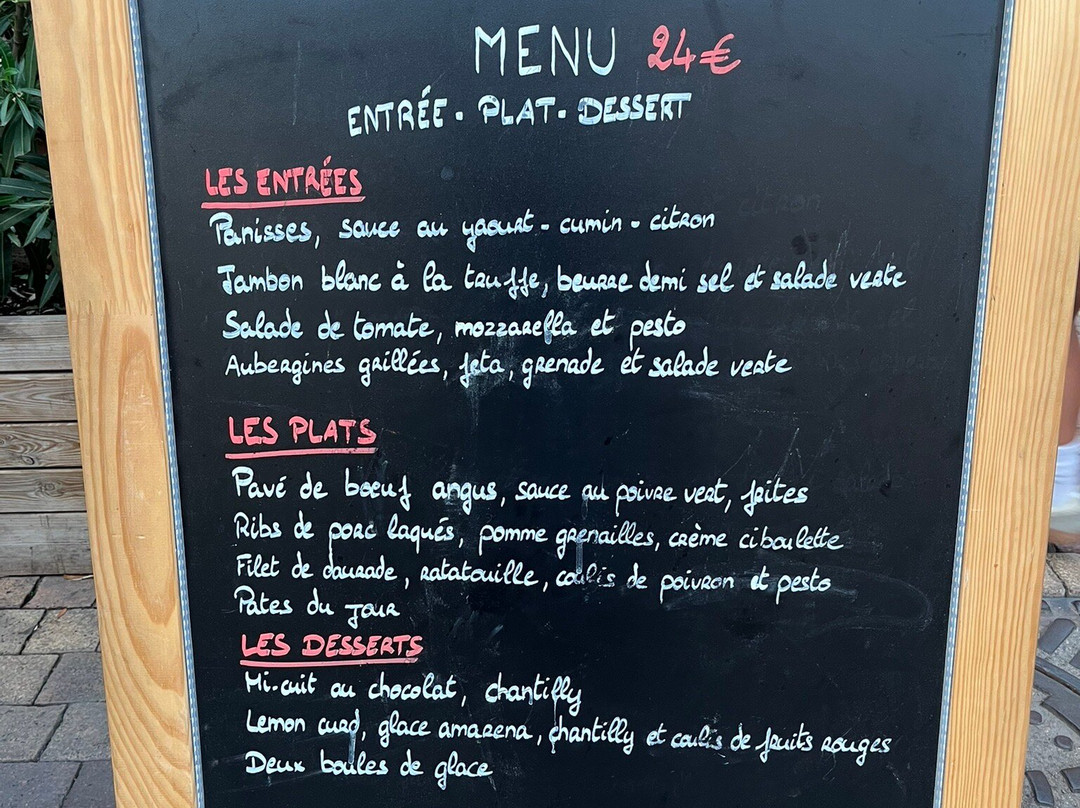 MENU 24€
ENTRÉE. PLAT. DESSERT
LES ENTRÉES
Panisses, sauce au yaourt - cumin - citron
Jambon blanc à la truffe, beurre demi sel et salade verte
Salade de tomate, mozzarella et pesto
Aubergines grillées, feta, grenade et salade verte
LES PLATS
Pavé de boeuf angus, sauce au poivre vert, frites
Ribs de porc laqués, pomme grenailles, crème ciboulette
Filet de daurade, ratatouille, coulis de poivron et pesto
Pates du jour
LES DESSERTS
Mi-cuit au chocolat, chantilly
Lemon curd, glace amarena, chantilly et coulis de fruits rouges
Deux boules de glace